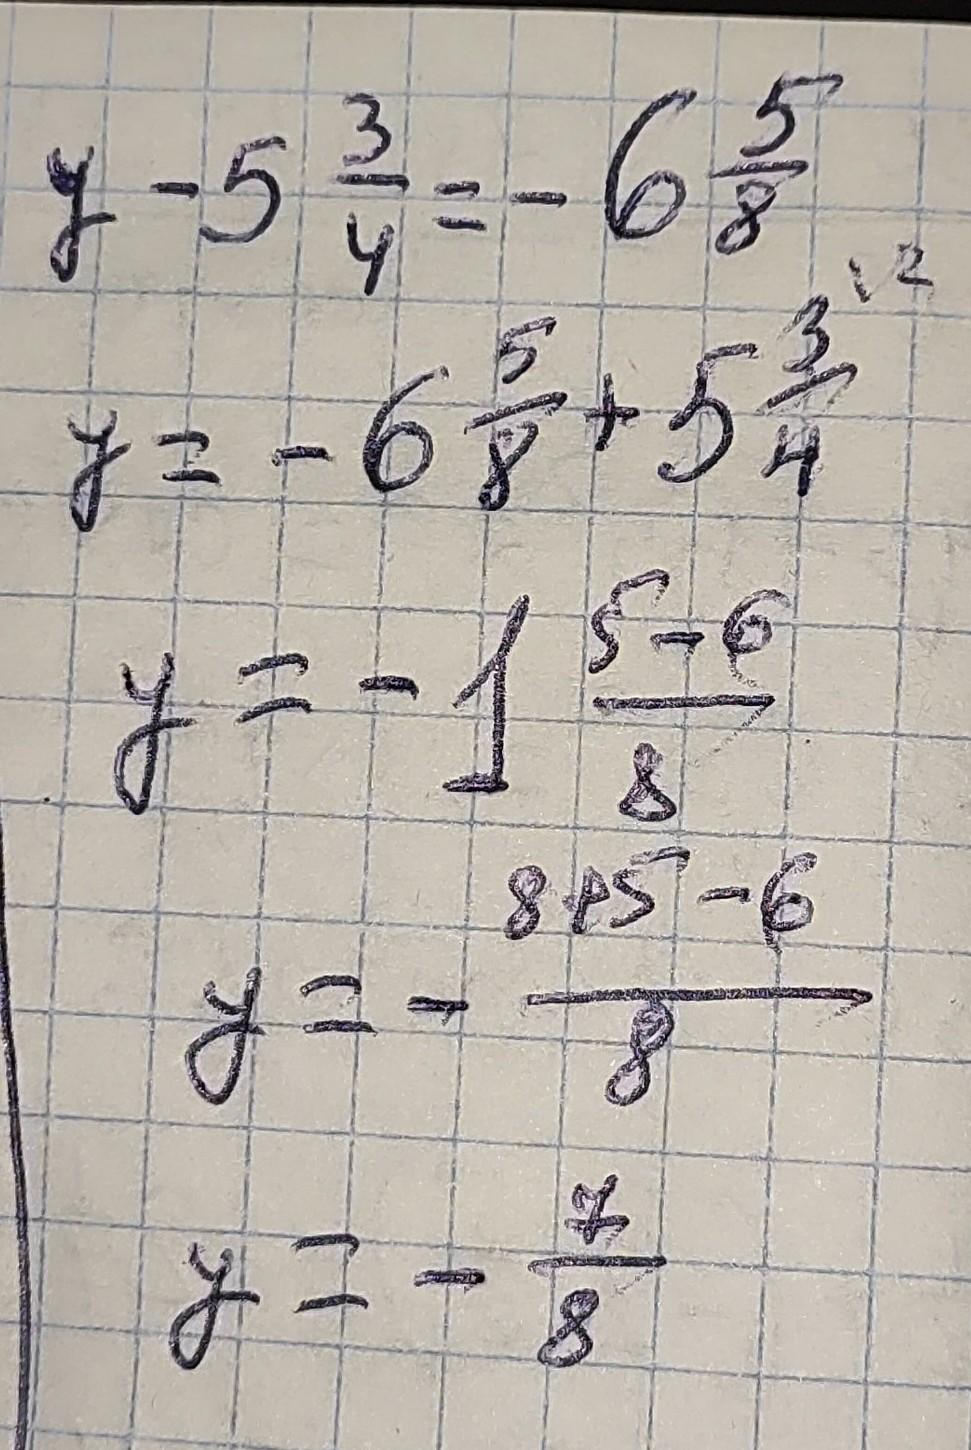 y - 5 3/4 = - 6 5/8
y = - 6 5/8 + 5 3/4 \2
y = - 1 5-6/8
y = - 8+5-6/8
y = - 7/8